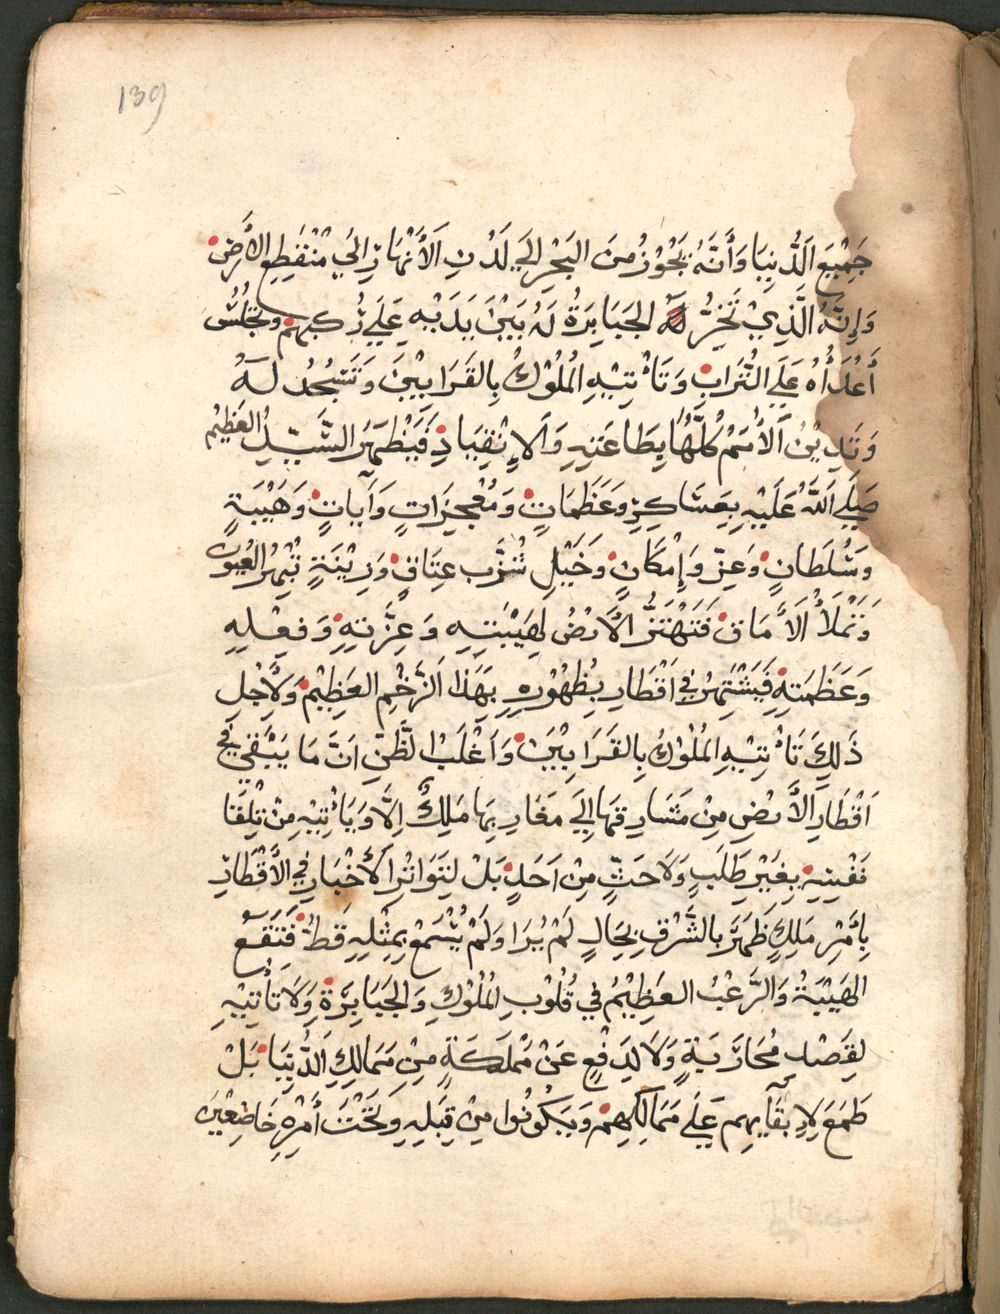 139
جَمِيْعِ اَلدُّنِيَا وَأَنَّهُ يَجُوْزُ مِنَ البَحْرِ اِلَي لَدُنِ اَلأَنْهَارِ اِلَي مُنْقَطِعِ الأَرْضِ
وَإِنَّهُ الَّذِيْ تَخِرُّ لَهُ الجَبَابِرَةُ لَهُ بَيْنَ يَدَيْهِ عَلَي رُكَبِهِمْ وَتَجْلُسُ
أَعْدَأُهُ عَلَي التُّرَابِ وَتَأْتِيْهِ المُلُوْكُ بِالقَرَابِيْنَ وَتَسْجُدُ لَهُ
وَتَدِيْنُ اَلأُمَمُ كُلُّهَا بِطَاعَتِهِ وَاَلاِنْقِيَادِ فَيَظْهَرُ السَّيِّدُ العَظِيْمُ
صَلَّي اَللَّهُ عَلَيْهِ بِعَسَاكِرٍ وَعَظَمَاتٍ وَمُعْجِزَاتٍ وَآيَاتٍ وَهَيْبَةٍ
وَسُلْطَانٍ وَعِزٍّ وَإِمْكَانٍ وَخَيْلٍ شُزَّبٍ عِتَاقٍ وَزِيْنَةٍ تُبْهِرُ العُيُوْنَ
وَتَمْلَأُ اَلأَمَاقَ فَتَهْتَزُّ الأَرْضُ لِهَيْبَتِهِ وَعِزَّتِهِ وَفِعْلِهِ
وَعَظَمَتِهِ فَيَشْتَهِرُ فِي اَقْطَارِ بِظُهُوْرِهِ بِهَذَا اَلزَّخْمِ العَظِيْمِ وَلأَجْلِ
ذَلِكَ تَأْتِيْهِ المُلُوْكُ بِالقَرَابِيْنَ وَاَغْلَبُ الظَّنِّ اَنَّ مَا يَبْقَي فِي
اَقْطَارِ الأَرْضِ مِنْ مَشَارِقِهَا اِلَي مَغَارِبِهَا مَلِكٌ اِلاَّ وَيَأْتِيْهِ مِنْ تِلْقَا
نَفْسِهِ بِغَيْرِ طَلَبٍ وَلاَ حَثٍّ مِنْ اَحَدٍ بَلْ لِتَوَاتُرِ الأَخْبَارِ فِي الأَقْطَارِ
بِأَمْرِ مَلِكٍ ظَهَرَ بِالشَّرْقِ بِحَالٍ لَمْ يُرَا وَلَمْ يُسْمَعْ بِمِثْلِهِ قَطُّ فَتَقَعُ
الهَيْبَةُ وَالرَّعْبُ العَظِيْمُ فِي قُلُوْبِ المُلُوْكِ وَالجَبَابِرَةِ وَلاَ تَأْتِيْهِ
لِقَصْدِ مُحَارَبَةٍ وَلاَ لِدَفْعٍ عَنْ مَمْلَكَةٍ مِنْ مَمَالِكِ اَلدُّنِيَا بَلْ
طَمَعَ لاِبْقَآيِهِم عَلَي مَمَالِكِهِمْ وَيَكُوْنُوا مِنْ قِبَلِهِ وَتَحْتَ أَمْرِهِ خَاضِعِيْنَ